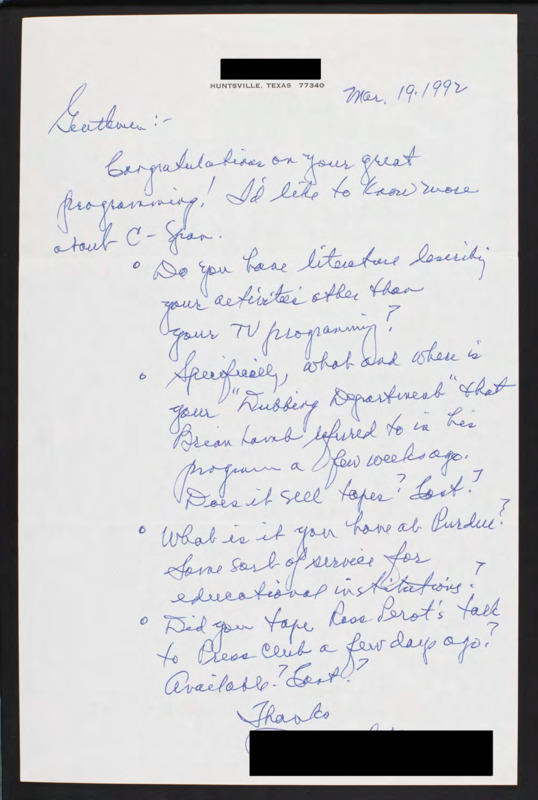 HUNTSVILLE, TEXAS 77340
Mar. 19, 1992
Gentlemen:-
Congratulations on your great
programming! I'd like to know more
about C-Span.
° Do you have literature describing
your activities other than
your TV programming?
° Specifically, what and where is
your "Dubbing Department" that
Brian Lamb refured to in his
program a few weeks ago.
Does it sell tapes? Cost?
° What is it you have at Purdue?
Some sort of service for
educational institutions?
° Did you tape Ross Perot's talk
to Press Club a few days ago?
Available? Cost?
Thanks